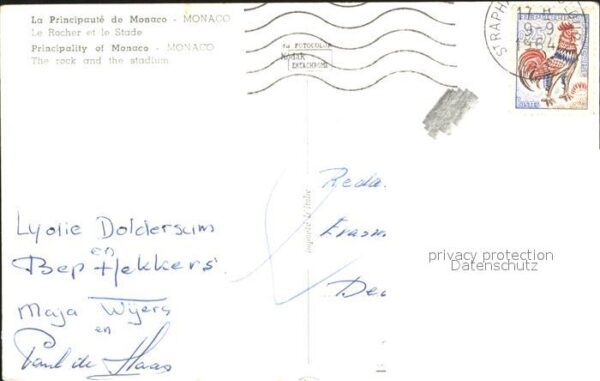 La Principauté de Monaco - MONACO
Le Rocher et le Stade
Principality of Monaco - MONACO
The rock and the stadium
Kodak
EKTACHROME
17 H
9-9
1964
ST RAPHA
Imprimé en Italie
Reda
Erasm
De
Lydie Doldersum
en
Bep Hekkers
Maja Wijers
en
Paul de Haas
privacy protection
Datenschutz